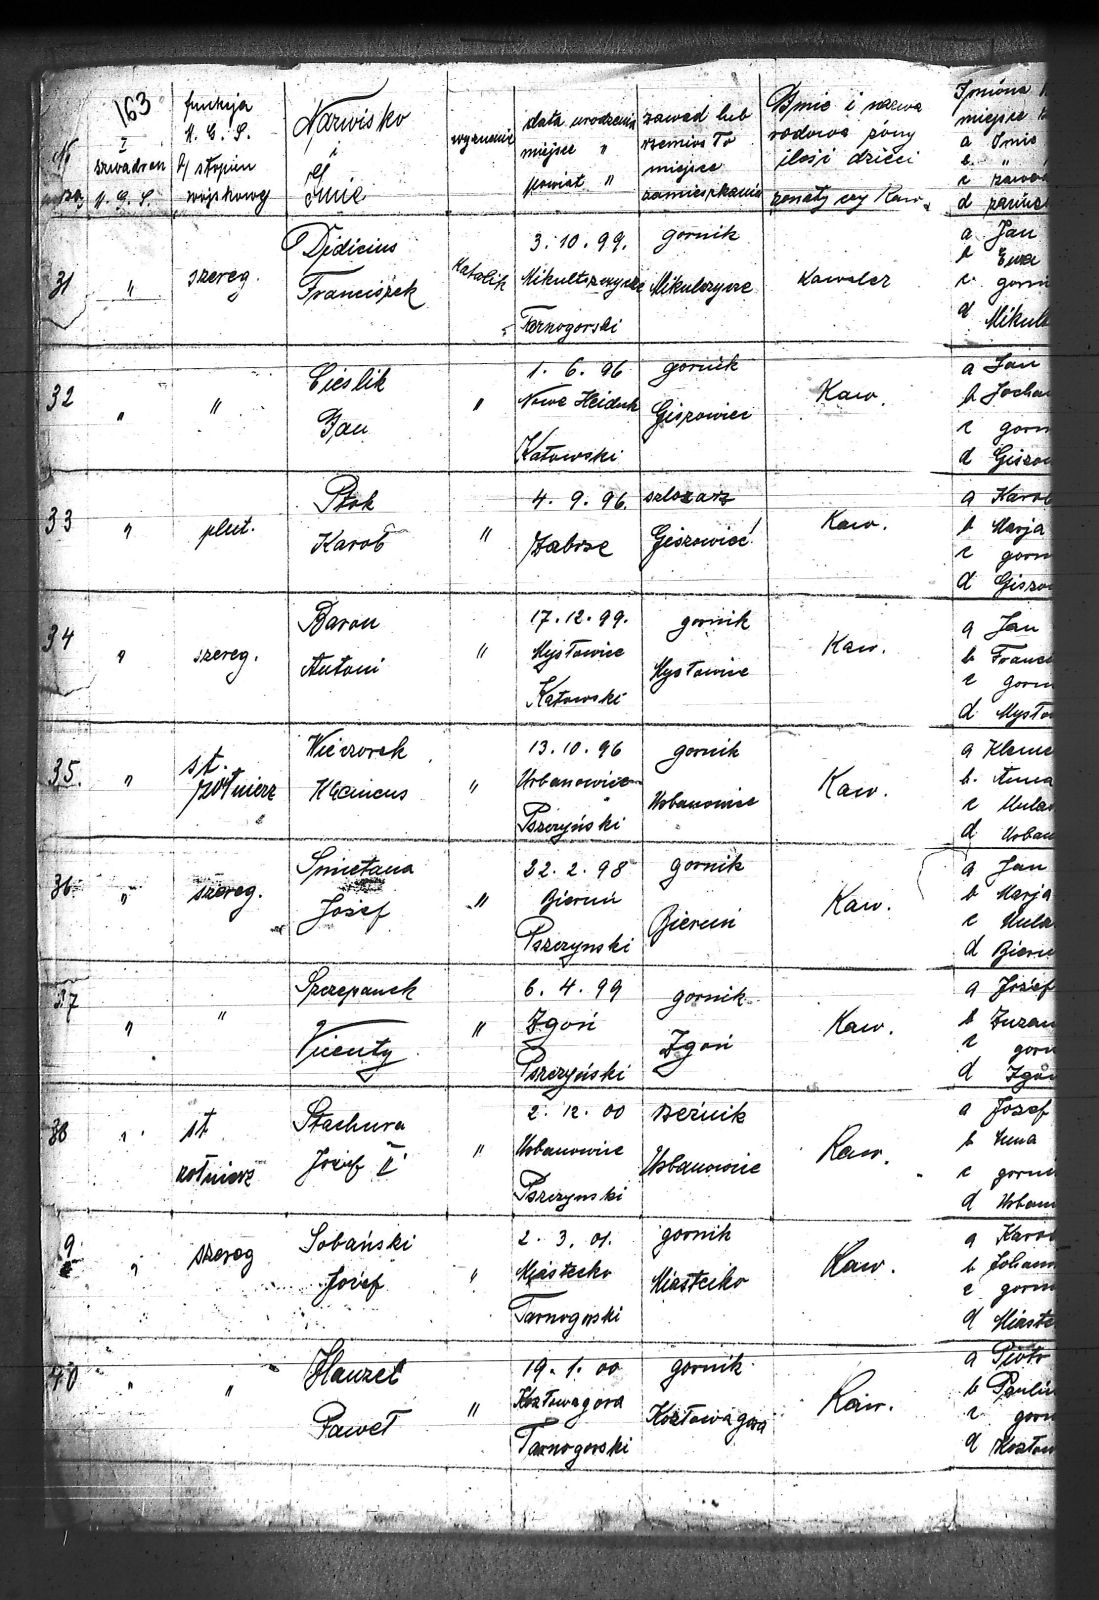 163
N
I
szwadron
funkcja
b/ stopień
wojskowy
Nazwisko
i
Imie
wyznanie
data urodzenia
miejsce "
powiat "
zawód lub
rzemiosło
miejsce
zamieszkania
Imie i nazwa
rodowa żony
ilość dzieci
żonaty czy Kaw.
Imiona
miejsce
a Imie
c zawód
d
31 " szereg. Didicius Franciszek Katolik
3. 10. 99. Mikultszczycze Tarnogorski
gornik Mikulczycze Kawaler
a Jan
b Ewa
c gorni
d Mikul
32 " " Cieslik Jan "
1. 6. 96 Nowe Heiduk Katowski
gornik Giszowiec Kaw.
a Jan
b Jochan
c gorn
d Giszow
33 " plut. Ptok Karol "
4. 9. 96. Zabrze
szlosarz Giszowiec Kaw.
a Karol
b Marja
c gorn
d Giszow
34 " szereg. Baron Antoni "
17. 12. 99. Mysłowice Katowski
gornik Mysłowice Kaw.
a Jan
b Franci
c gorn
d Mysło
35. " st. żołnierz Wieczorek Klemens "
13. 10. 96 Urbanowice Pszczyński
gornik Urbanowice Kaw.
a Kleme
b. Anna
c Mular
d Urban
36. " szereg. Smietana Józef "
22. 2. 98 Bieruń Pszczynski
gornik Bieruń Kaw.
a Jan
b Marja
c Mular
d Bieru
37 " " Szczepanek Vicenty "
6. 4. 99 Zgoń Pszczyński
gornik Zgoń Kaw.
a Józef
b Zuzan
c gorn
d Zgoń
38 " st żołnierz Stachura Józef II "
2. 12. 00 Urbanowice Pszczynski
Urbanowice Kaw.
a Josef
b Anna
c gorni
d Urban
9 " szereg Sobański Józef "
2. 3. 01. Miastecko Tarnogorski
gornik Miasteiko Kaw.
a Karol
b Johann
c gorn
d Miaste
40 " " Hanzel Paweł "
19. 1. 00 Kozłowagora Tarnogorski
gornik Kozłowagora Kaw.
a Piotr
b Paulin
c gorn
d Kozłow